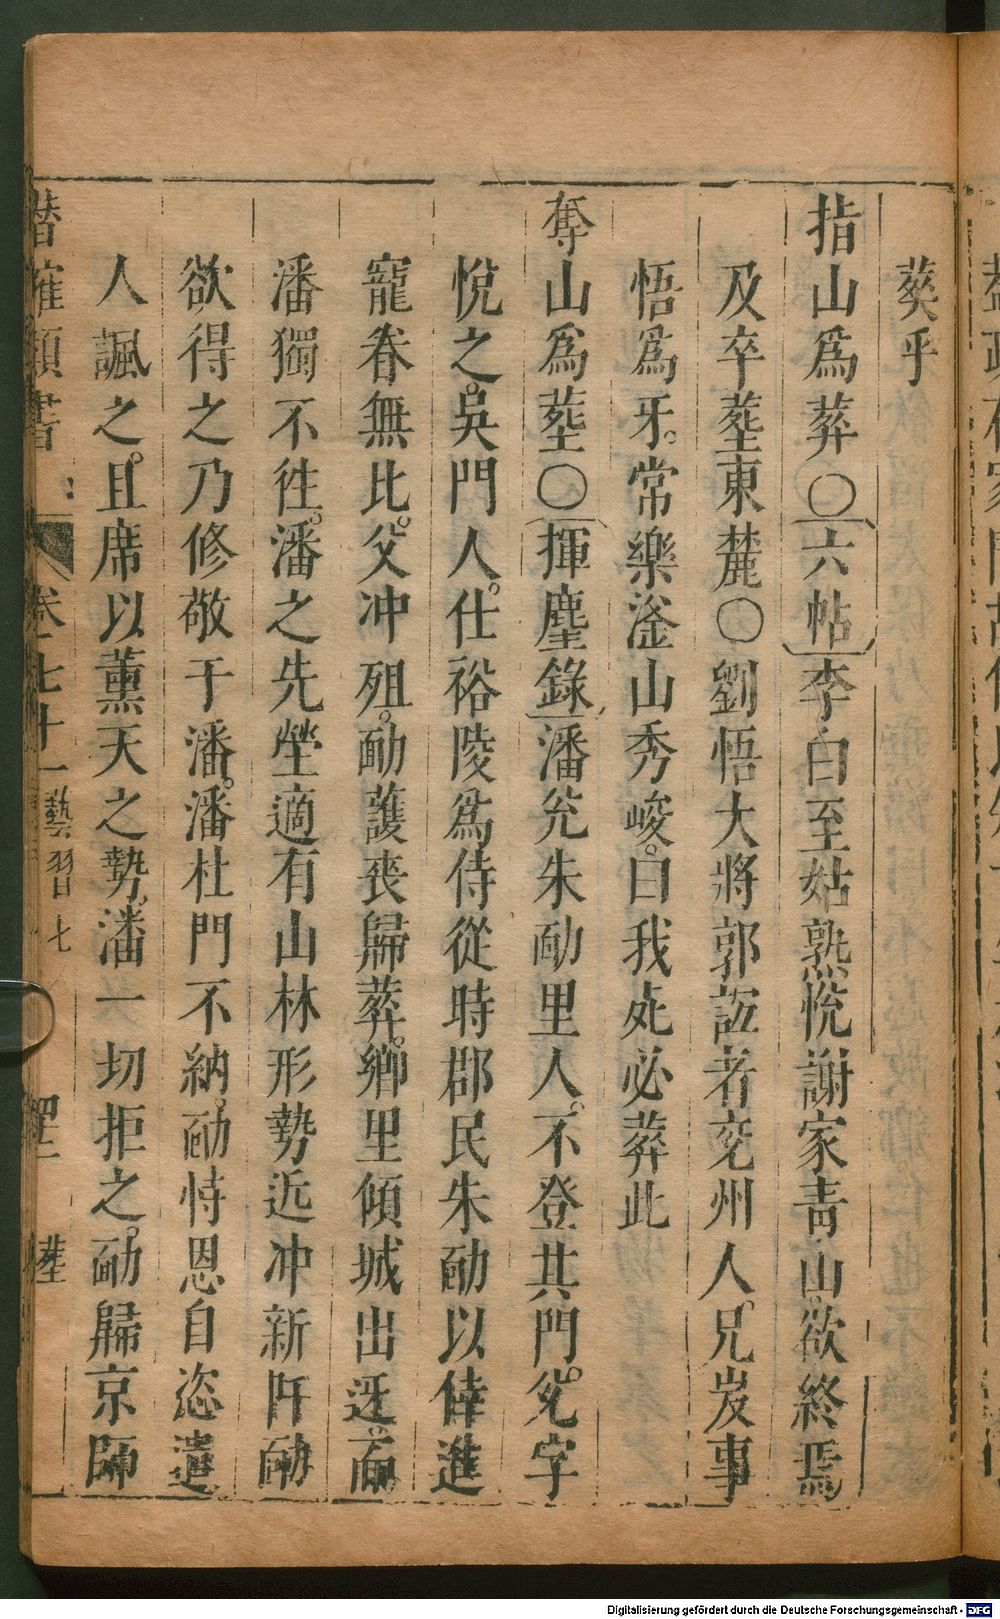 葵乎
指山爲葬〇六帖李白至姑熟悅謝家青山欲終焉
及卒塟東麓〇劉悟大將郭䛠者兖州人兄岌事
悟爲牙常樂滏山秀峻曰我死必葬此
奪山爲塟〇揮麈錄潘兊朱勔里人不登其門兊字
悅之吳門人仕裕陵爲侍從時郡民朱勔以倖進
寵眷無比父冲殂勔護喪歸葬鄉里傾城出迓而
潘獨不往潘之先塋適有山林形勢近冲新阡勔
欲得之乃修敬于潘潘杜門不納勔恃恩自恣遣
人諷之且席以薰天之勢潘一切拒之勔歸京師
潛確類書
卷七十一
藝習七
塟
Digitalisierung gefördert durch die Deutsche Forschungsgemeinschaft - DFG